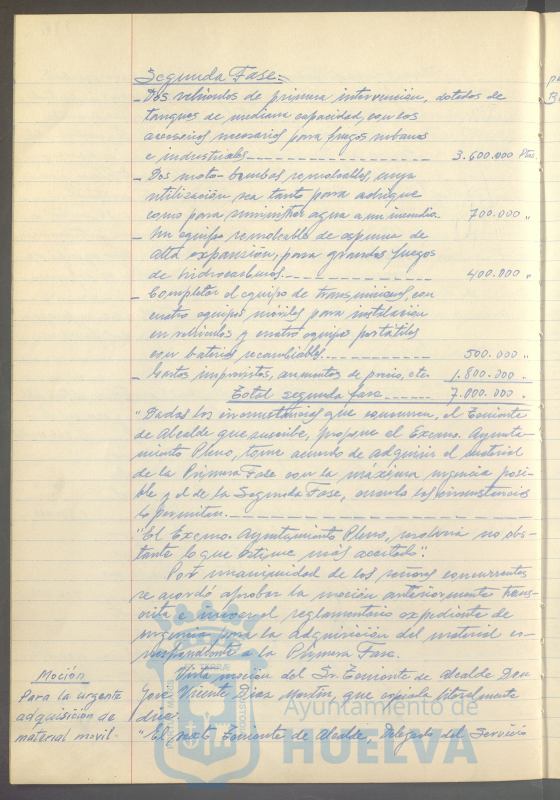 Segunda Fase=
- Dos vehículos de primera intervención, dotados de
tanques de mediana capacidad, con los
accesorios necesarios para fuegos urbanos
e industriales 3.600.000 Ptas.
- Dos moto-bombas remolcables, cuya
utilización sea tanto para achique
como para suministrar agua a un incendio. 700.000 "
- Un equipo remolcable de espuma de
alta expansión, para grandes fuegos
de hidrocarburos. 400.000 "
- Completar el equipo de transmisiones, con
cuatro equipos móviles para instalación
en vehículos y cuatro equipos portátiles
con baterías recambiables. 500.000 "
- Gastos imprevistos, aumentos de precio, etc. 1.800.000 .
Total segunda fase 7.000.000 .
"Dadas las circunstancias que concurren, el Teniente
de Alcalde que suscribe, propone al Excmo. Ayunta-
miento Pleno, tome acuerdo de adquirir el material
de la Primera Fase con la máxima urgencia posi-
ble y el de la Segunda Fase, cuando las circunstancias
lo permitan.
"El Excmo. Ayuntamiento Pleno, resolverá no obs-
tante lo que estime más acertado".
Por unanimidad de los señores concurrentes
se acordó aprobar la moción anteriormente trans-
crita e incoar el reglamentario expediente de
urgencia para la adquisición del material co-
rrespondiente a la Primera Fase.
Moción
Para la urgente
adquisición de
material movil.
Vista moción del Sr. Teniente de Alcalde Don
José Vicente Díaz Martín, que copiada literalmente
dice:
"El sexto Teniente de Alcalde, Delegado del Servicio
Ayuntamiento de
HUELVA